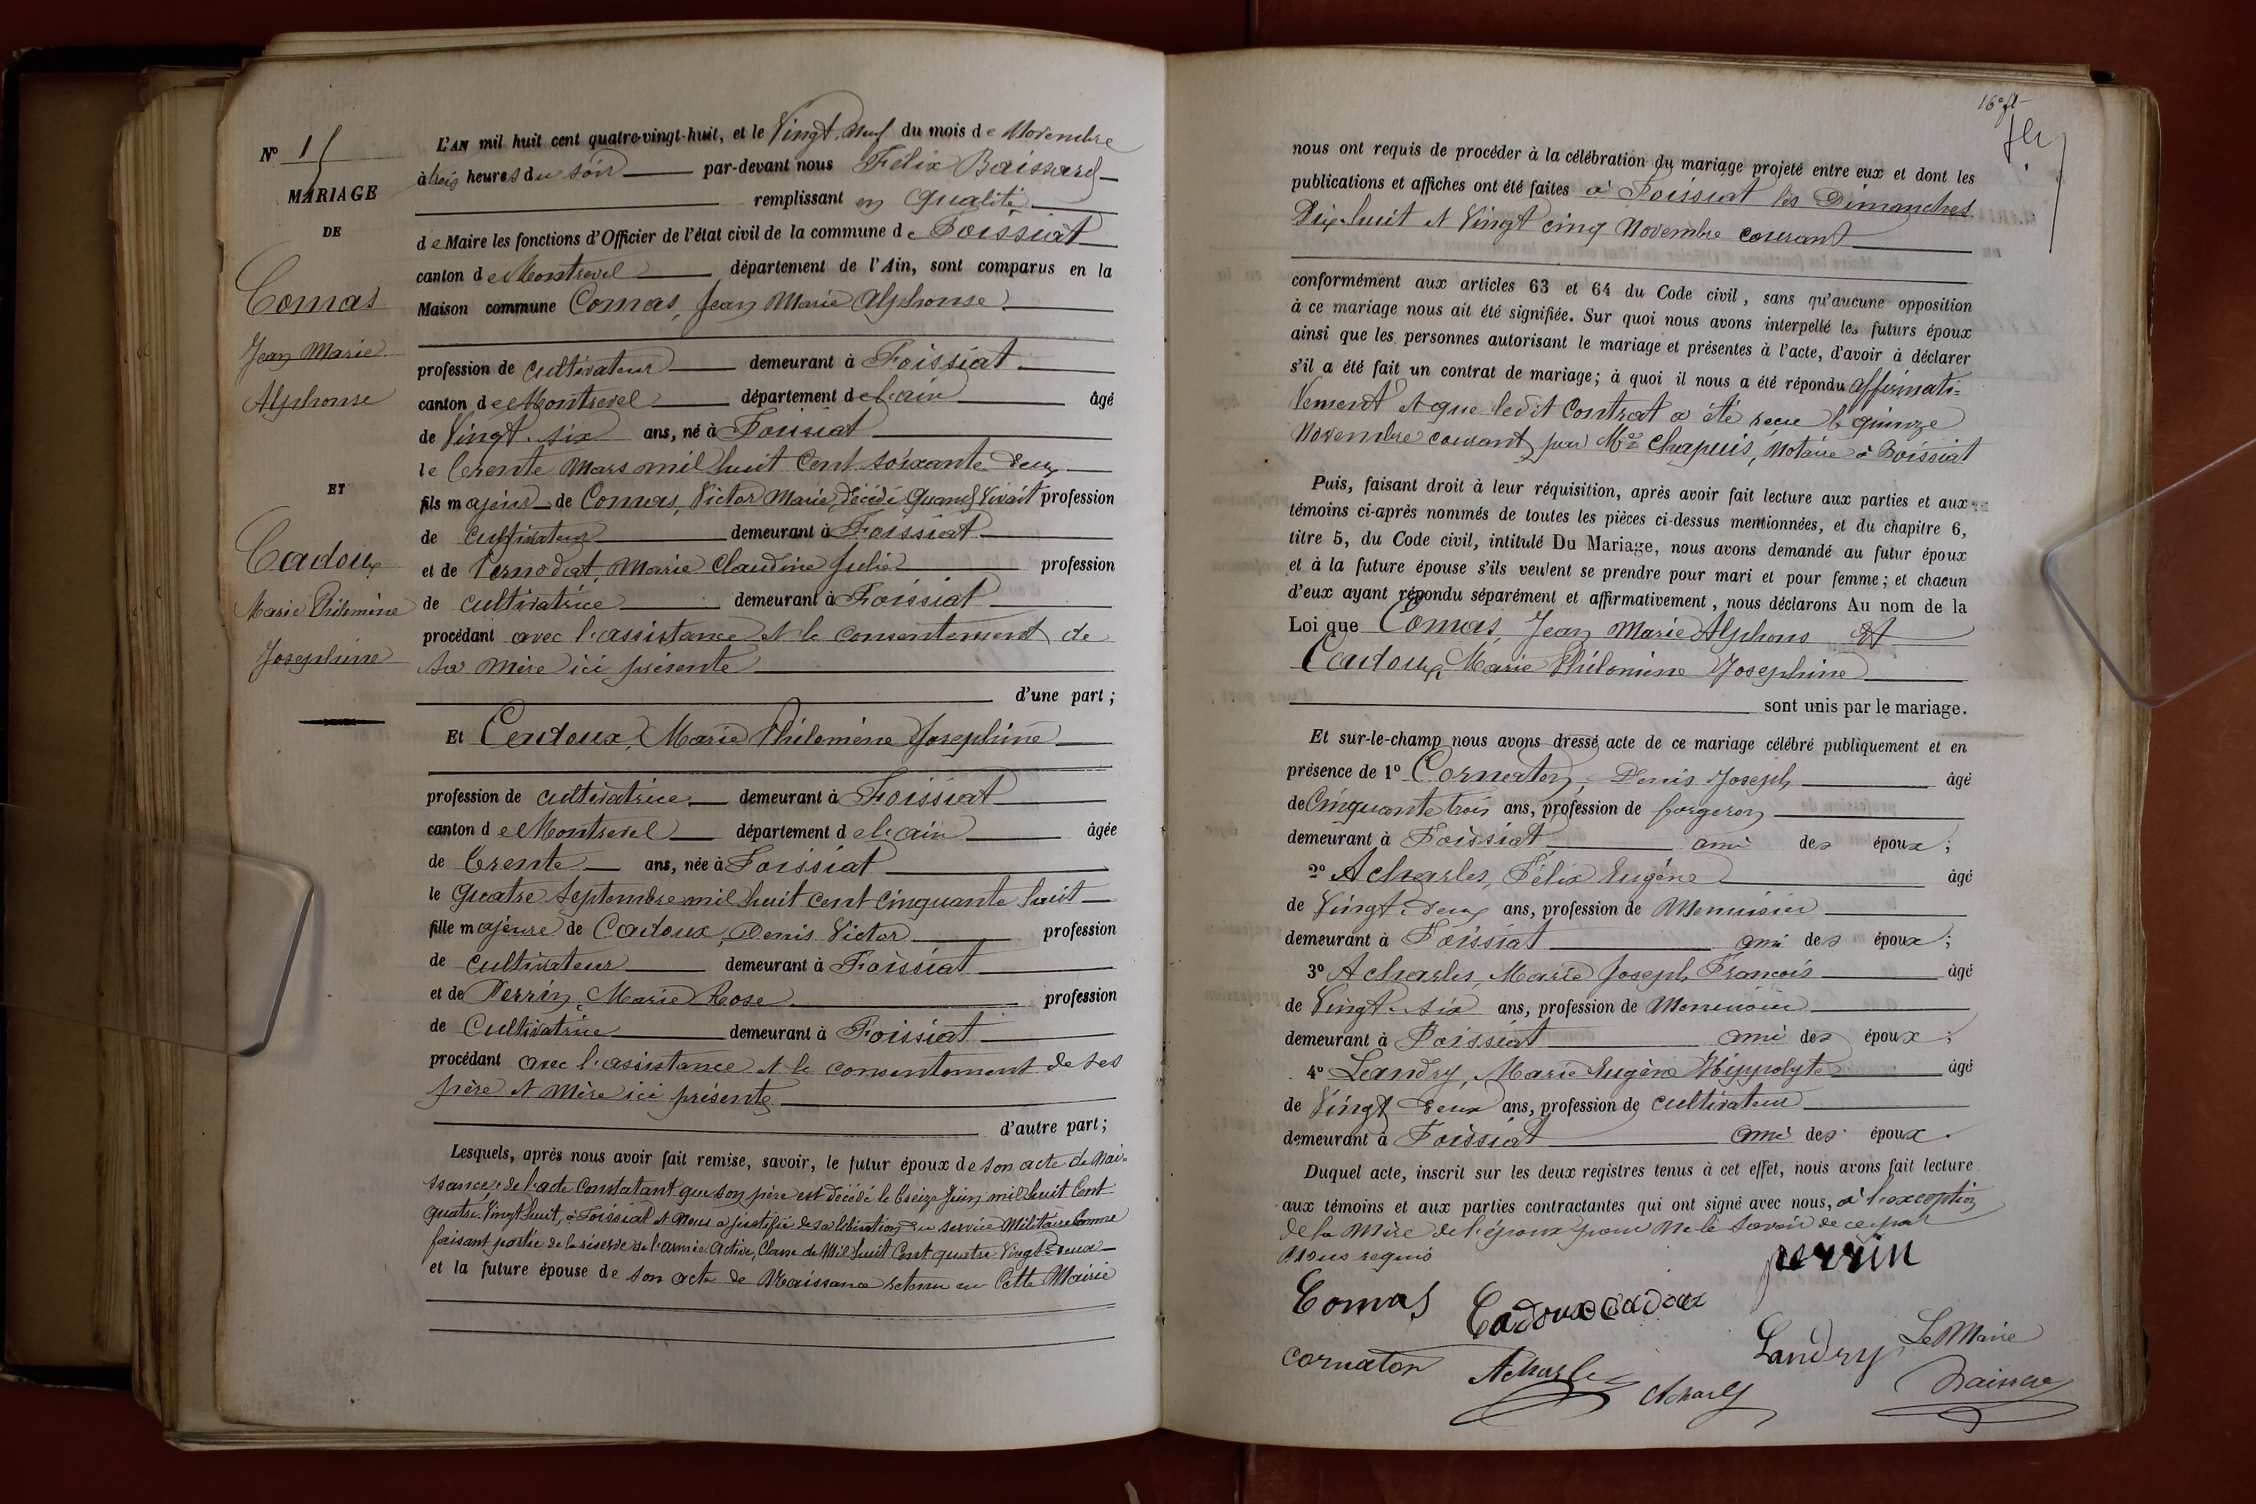 N° 15
MARIAGE
DE
Comas
Jean Marie
Alphonse
ET
Cadoux
Marie Philomène
Josephine
L'AN mil huit cent quatre-vingt-huit, et le Vingt-Neuf du mois de Novembre
à trois heures du soir par-devant nous Félix Baissard
remplissant en qualité
de Maire les fonctions d'Officier de l'état civil de la commune de Foissiat
canton de Montrevel département de l'Ain, sont comparus en la
Maison commune Comas, Jean Marie Alphonse
profession de cultivateur demeurant à Foissiat
canton de Montrevel département de l'ain âgé
de Vingt-six ans, né à Foissiat
le trente Mars mil huit Cent soixante deux
fils majeur de Comas, Victor Marie, décédé quand Vivait profession
de cultivateur demeurant à Foissiat
et de Pernodat, Marie Claudine Julie profession
de cultivatrice demeurant à Foissiat
procédant avec l'assistance et le consentement de
sa mère ici présente
d'une part ;
Et Cadoux, Marie Philomène Josephine
profession de cultivatrice demeurant à Foissiat
canton de Montrevel département de l'ain âgée
de trente ans, née à Foissiat
le quatre Septembre mil huit cent cinquante huit
fille majeure de Cadoux, Denis Victor profession
de cultivateur demeurant à Foissiat
et de Perrin, Marie Rose profession
de Cultivatrice demeurant à Foissiat
procédant avec l'asisstance et le consentement de ses
père et mère ici présents
d'autre part ;
Lesquels, après nous avoir fait remise, savoir, le futur époux de son acte de Nai-
ssance, de l'acte Constatant que son père est décédé le treize Juin mil huit Cent
quatre Vingt huit, à Foissiat et Nous a justifié de sa libération du service Militaire Comme
faisant partie de la réserve de l'armée Active, Classe de Mil huit Cent quatre Vingt-deux
et la future épouse de son acte de Naissance retenu en Cette Mairie
16e ft
nous ont requis de procéder à la célébration du mariage projeté entre eux et dont les
publications et affiches ont été faites à Foissiat les Dimanches
Dix-huit et Vingt cinq Novembre courant
conformément aux articles 63 et 64 du Code civil, sans qu'aucune opposition
à ce mariage nous ait été signifiée. Sur quoi nous avons interpellé les futurs époux
ainsi que les personnes autorisant le mariage et présentes à l'acte, d'avoir à déclarer
s'il a été fait un contrat de mariage ; à quoi il nous a été répondu affirmati-
Vement et que ledit Contrat a été reçu le quinze
Novembre courant par Me Chapuis, Notaire à Foissiat
Puis, faisant droit à leur réquisition, après avoir fait lecture aux parties et aux
témoins ci-après nommés de toutes les pièces ci-dessus mentionnées, et du chapitre 6,
titre 5, du Code civil, intitulé Du Mariage, nous avons demandé au futur époux
et à la future épouse s'ils veulent se prendre pour mari et pour femme ; et chacun
d'eux ayant répondu séparément et affirmativement, nous déclarons Au nom de la
Loi que Comas, Jean Marie Alphons et
Cadoux, Marie Philomène Josephine
sont unis par le mariage.
Et sur-le-champ nous avons dressé acte de ce mariage célébré publiquement et en
présence de 1° Cornaton, Denis Joseph âgé
de Cinquante trois ans, profession de forgeron
demeurant à Foissiat ami des époux ;
2° Acharles, Félix Eugène âgé
de Vingt-deux ans, profession de Menuisier
demeurant à Foissiat ami des époux ;
3° Acharles, Marie Joseph François âgé
de Vingt-six ans, profession de Menuisier
demeurant à Foissiat ami des époux ;
4° Landry, Marie Eugène Hippolyte âgé
de Vingt deux ans, profession de cultivateur
demeurant à Foissiat ami des époux.
Duquel acte, inscrit sur les deux registres tenus à cet effet, nous avons fait lecture
aux témoins et aux parties contractantes qui ont signé avec nous, à l'exception
de la Mère de l'époux pour Ne le Savoir de ce par
Nous requis
perrin
Comas Cadoux cadoux
Landry Le Maire
cornaton Acharles Acharles Baissard